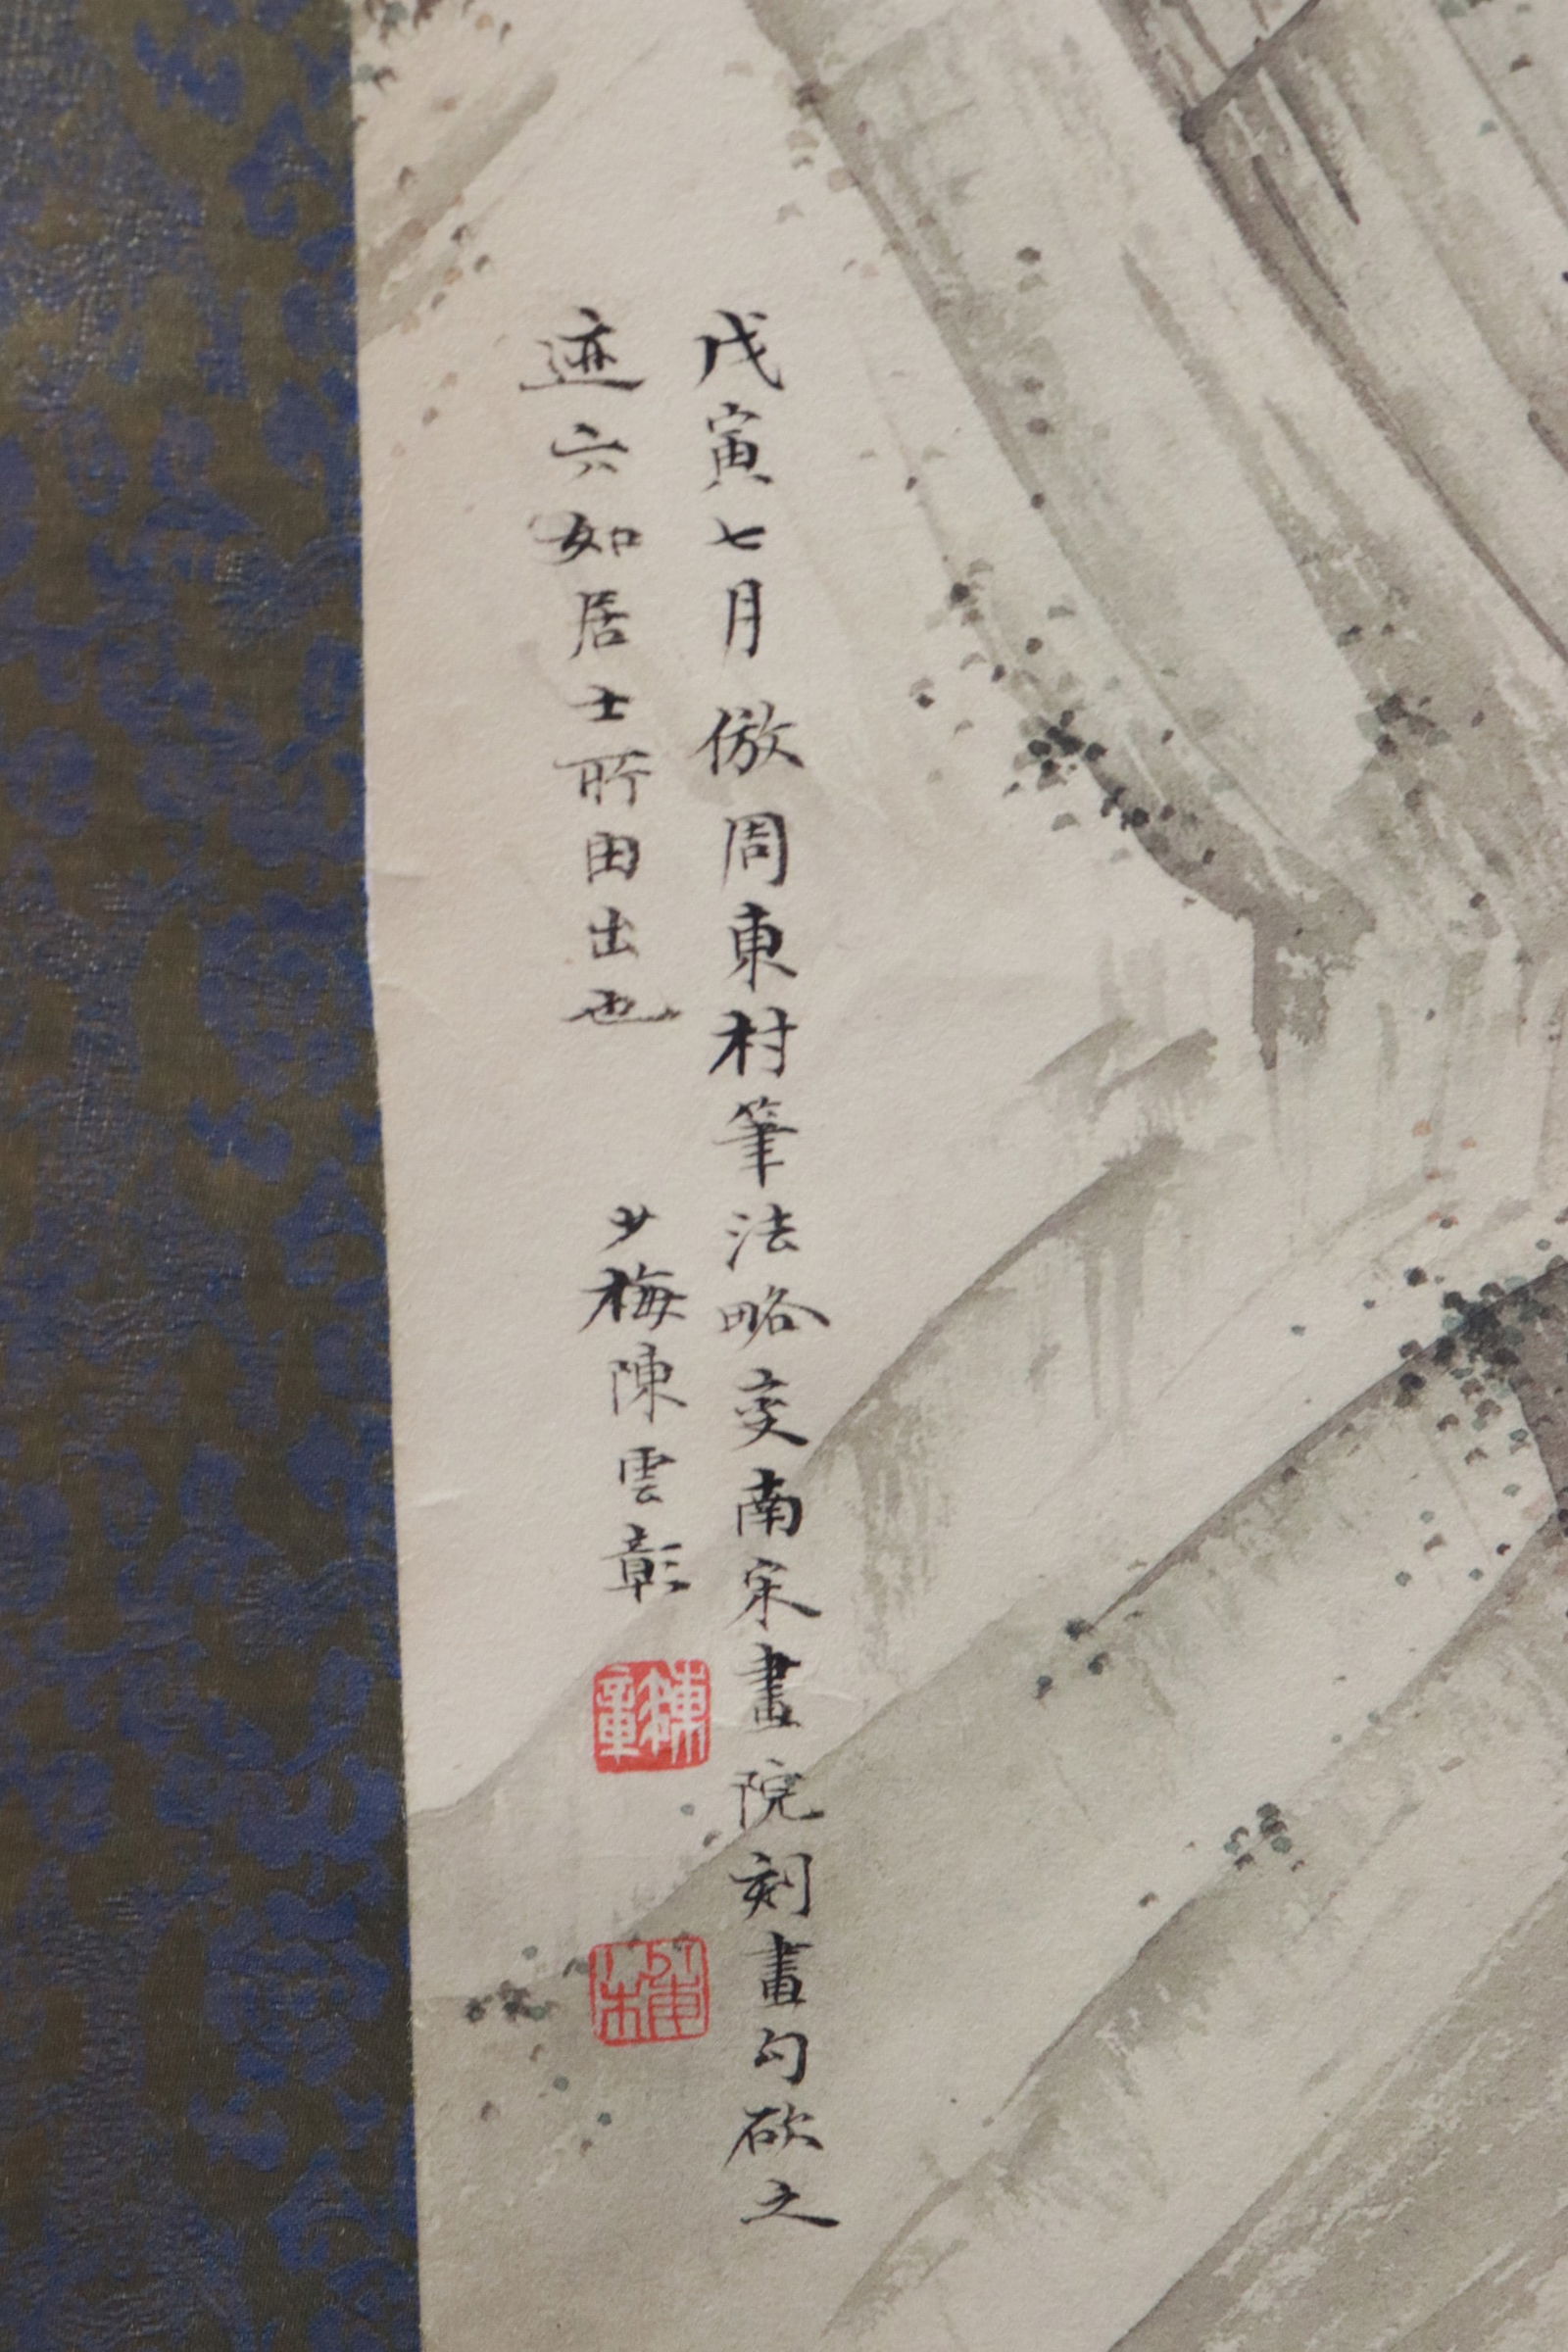 戊寅七月倣周東村筆法略变南宋畫院刻畫勾砍之
迹六如居士所由出也
少梅陳雲彰
陳雲彰
少梅